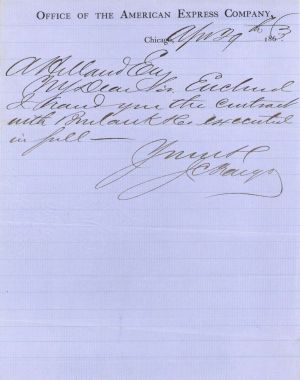 OFFICE OF THE AMERICAN EXPRESS COMPANY,
Chicago, Apr 29th 1863
A Holland Esq
My Dear Sir Enclosed
I hand you the contract
with Burbank &co executed
in full —
Yours &c
J C Fargo